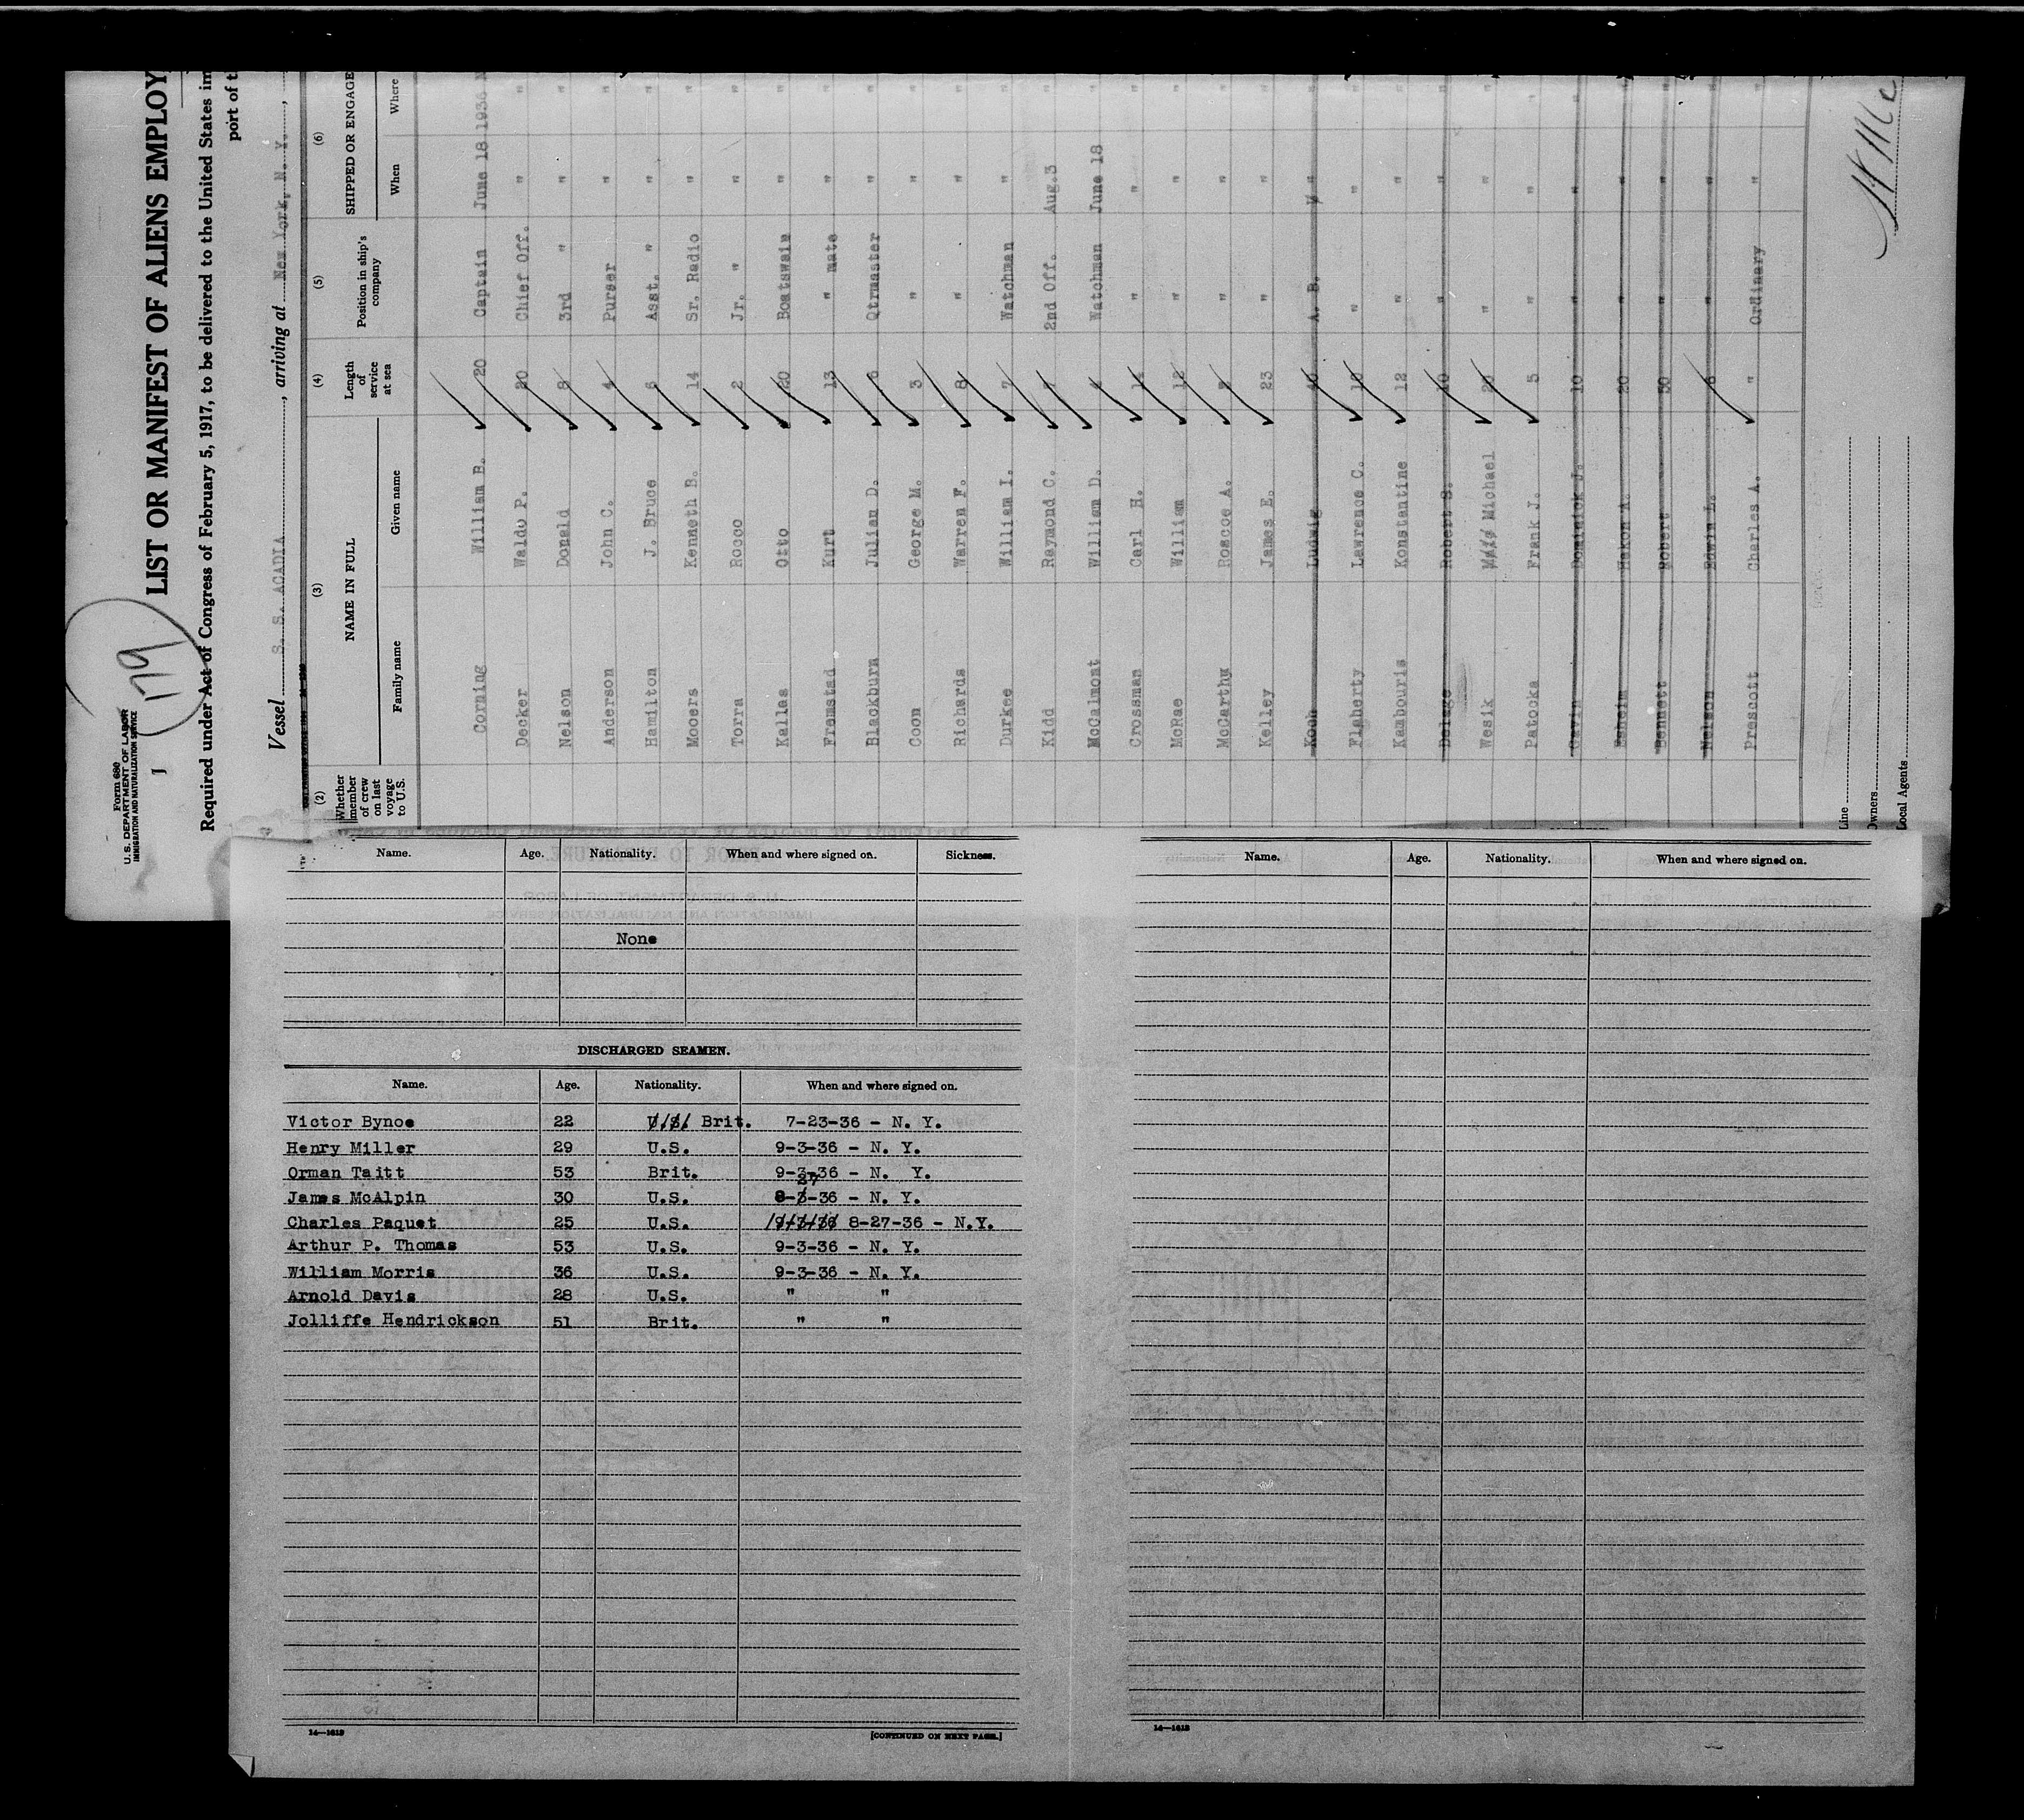 Form 680
U. S. DEPARTMENT OF LABOR
IMMIGRATION AND NATURALIZATION SERVICE
1
179
LIST OR MANIFEST OF ALIENS EMPLOY
Required under Act of Congress of February 5, 1917, to be delivered to the United States im
port of t
Vessel S. S. ACADIA, arriving at New York, N. Y.,
(2) (3) (4) (5) (6)
Whether member of crew on last voyage to U.S. NAME IN FULL Length of service at sea Position in ship's company SHIPPED OR ENGAGE
Family name Given name When Where
Corning William B. 20 Captain June 18 1936 N
Decker Waldo P. 20 Chief Off. " "
Nelson Donald 8 3rd " " "
Anderson John C. 4 Purser " "
Hamilton J. Bruce 6 Asst. " " "
Mooers Kenneth B. 14 Sr. Radio " "
Torra Rocco 2 Jr. " " "
Kallas Otto 20 Boatswain " "
Fremstad Kurt 13 " mate " "
Blackburn Julian D. 6 Qtrmaster " "
Coon George M. 3 " " "
Richards Warren F. 8 " " "
Durkee William I. 7 Watchman " "
Kidd Raymond C. 2nd Off. Aug.3 "
McCalmont William D. Watchman June 18 "
Crossman Carl H. 14 " " "
McRae William 12 " " "
McCarthy Roscoe A. " " "
Kelley James E. 23 " " "
Koch Ludwig 40 A. B. " "
Flaherty Lawrence C. 10 " " "
Kambouris Konstantine 12 " " "
Delage Robert S. 10 " " "
Wesik Michael 20 " " "
Patocka Frank J. 5 " " "
Gavin Dominick J. 10 " " "
Hakon A. 20 " " "
Bennett Robert 30 " " "
Nelson Edwin L. 6 " " "
Prescott Charles A. " Ordinary " "
Line
Owners
Local Agents
Name. Age. Nationality. When and where signed on. Sickness.
None
DISCHARGED SEAMEN.
Name. Age. Nationality. When and where signed on.
Victor Bynoe 22 U.S. Brit. 7-23-36 - N. Y.
Henry Miller 29 U.S. 9-3-36 - N. Y.
Orman Taitt 53 Brit. 9-3-36 - N. Y.
27
James McAlpin 30 U.S. 8-3-36 - N. Y.
Charles Paquet 25 U.S. 9-3-36 8-27-36 - N.Y.
Arthur P. Thomas 53 U.S. 9-3-36 - N. Y.
William Morris 36 U.S. 9-3-36 - N. Y.
Arnold Davis 28 U.S. " "
Jolliffe Hendrickson 51 Brit. " "
14—1613
[CONTINUED ON NEXT PAGE.]
Name. Age. Nationality. When and where signed on.
14—1613